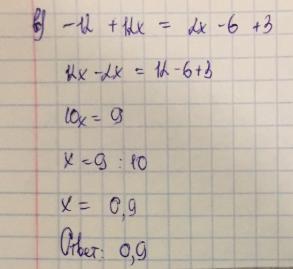 в) -12 + 12x = 2x - 6 + 3
12x - 2x = 12 - 6 + 3
10x = 9
x = 9 : 10
x = 0,9
Ответ: 0,9